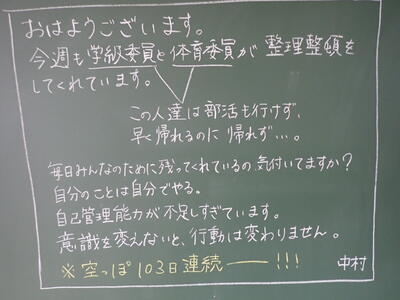 おはようございます。
今週も学級委員と体育委員が 整理整頓を
してくれています。
この人達は部活も行けず、
早く帰れるのに 帰れず…。
毎日みんなのために残ってくれているの、気付いてますか?
自分のことは自分でやる。
自己管理能力が不足しすぎています。
意識を変えないと、行動は変わりません。
※空っぽ103日連続――!!! 中村